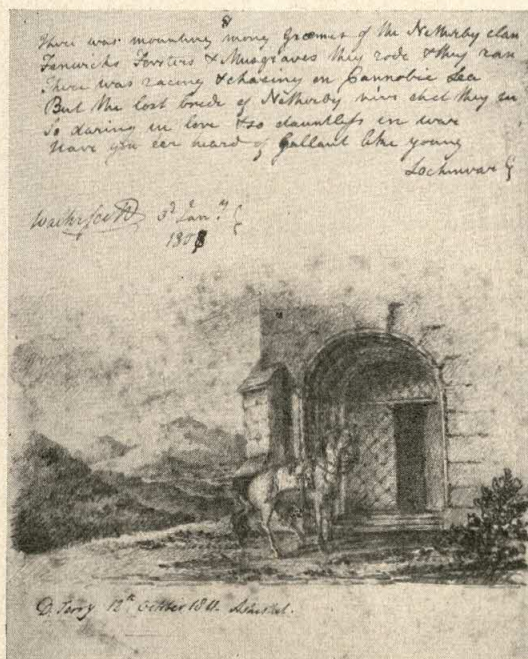 8
There was mounting mong Græmes of the Netherby clan
Fenwicks Forsters & Musgraves they rode & they ran
There was racing & chasing on Cannobie Lea
But the lost bride of Netherby did they
So daring in love & so dauntless in war
Have you eer heard of Gallant like young
Lochinvar
Walter Scott 3d Jany
180
D. Terry 12th October 1811.